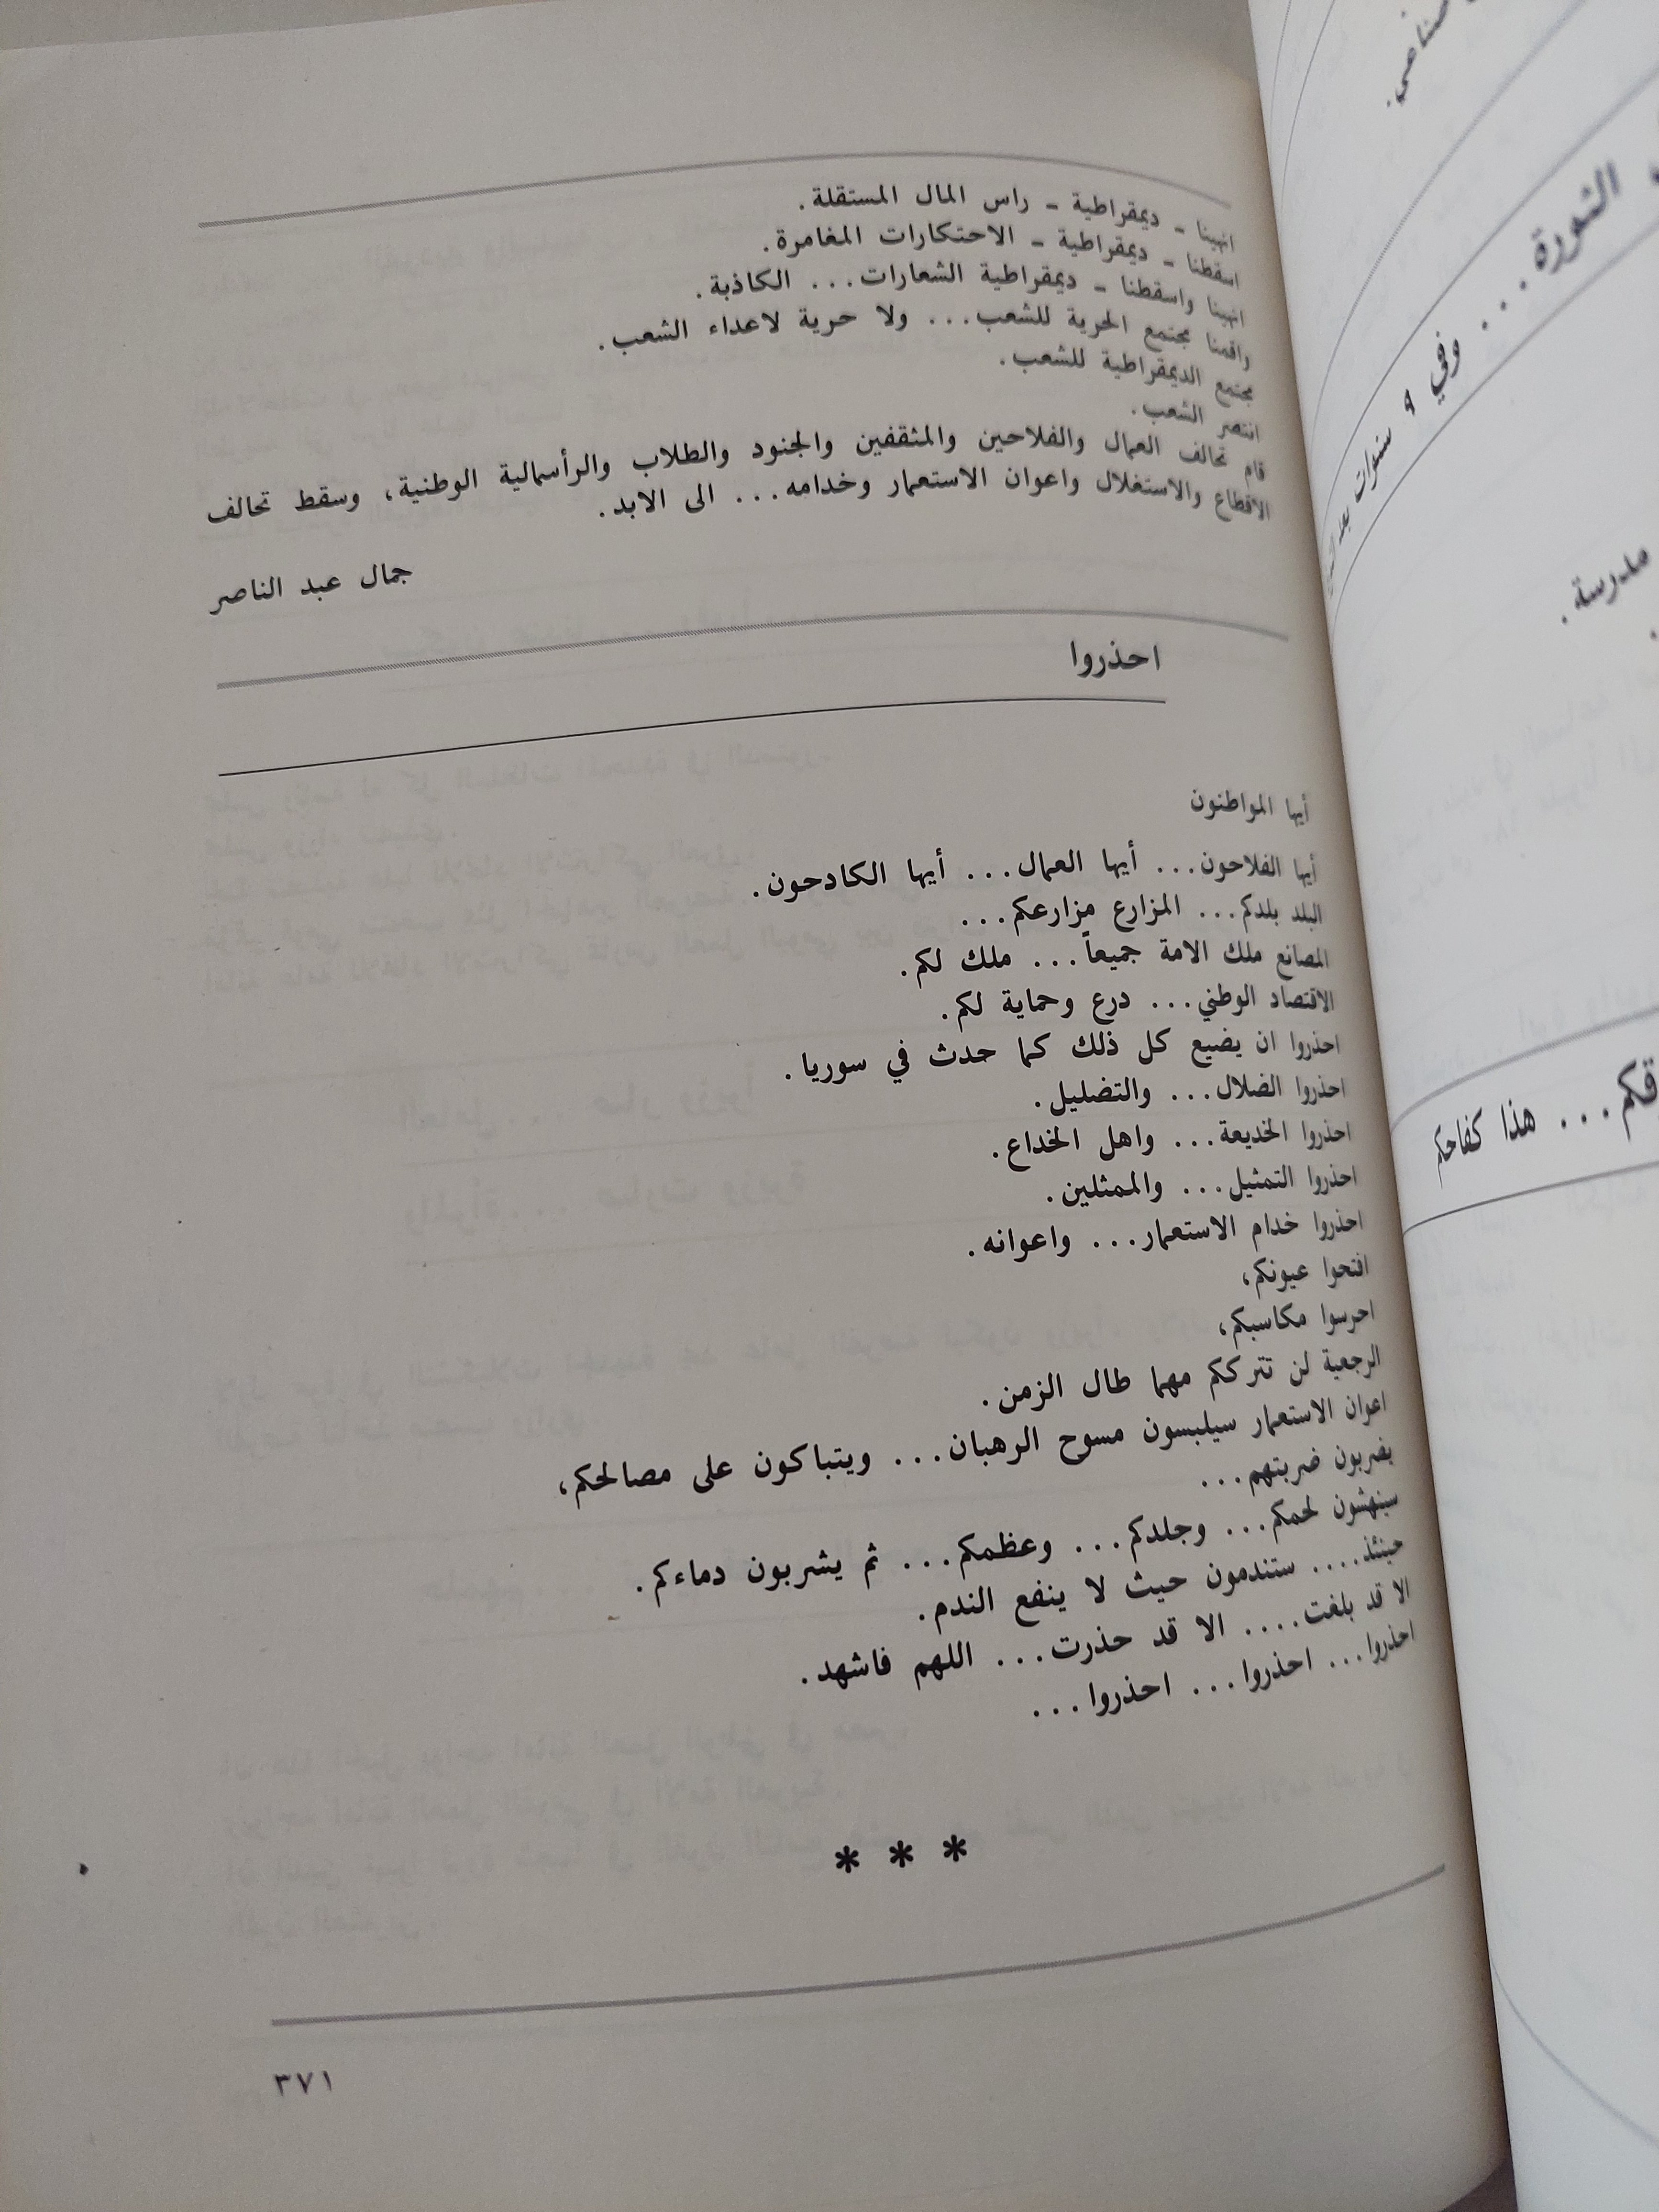 انهينا - ديمقراطية - راس المال المستقلة.
اسقطنا - ديمقراطية - الاحتكارات المغامرة.
انهينا واسقطنا - ديمقراطية الشعارات... الكاذبة.
واقمنا مجتمع الحرية للشعب... ولا حرية لاعداء الشعب.
مجتمع الديمقراطية للشعب.
انتصر الشعب.
قام تحالف العمال والفلاحين والمثقفين والجنود والطلاب والرأسمالية الوطنية، وسقط تحالف
الاقطاع والاستغلال واعوان الاستعمار وخدامه... الى الابد.
جمال عبد الناصر
احذروا
أيها المواطنون
أيها الفلاحون... أيها العمال... أيها الكادحون.
البلد بلدكم... المزارع مزارعكم...
المصانع ملك الامة جميعاً... ملك لكم.
الاقتصاد الوطني... درع وحماية لكم.
احذروا ان يضيع كل ذلك كما حدث في سوريا.
احذروا الضلال... والتضليل.
احذروا الخديعة... واهل الخداع.
احذروا التمثيل... والممثلين.
احذروا خدام الاستعمار... واعوانه.
افتحوا عيونكم،
احرسوا مكاسبكم،
الرجعية لن تترككم مهما طال الزمن.
اعوان الاستعمار سيلبسون مسوح الرهبان... ويتباكون على مصالحكم،
يضربون ضربتهم...
سينهشون لحمكم... وجلدكم... وعظمكم... ثم يشربون دماءكم.
حينئذ.... ستندمون حيث لا ينفع الندم.
الا قد بلغت.... الا قد حذرت... اللهم فاشهد.
احذروا... احذروا... احذروا...
* * *
٣٧١
صناعي.
الثورة... وفي ٩ سنوات بعد
مدرسة.
هذا كفاحكم